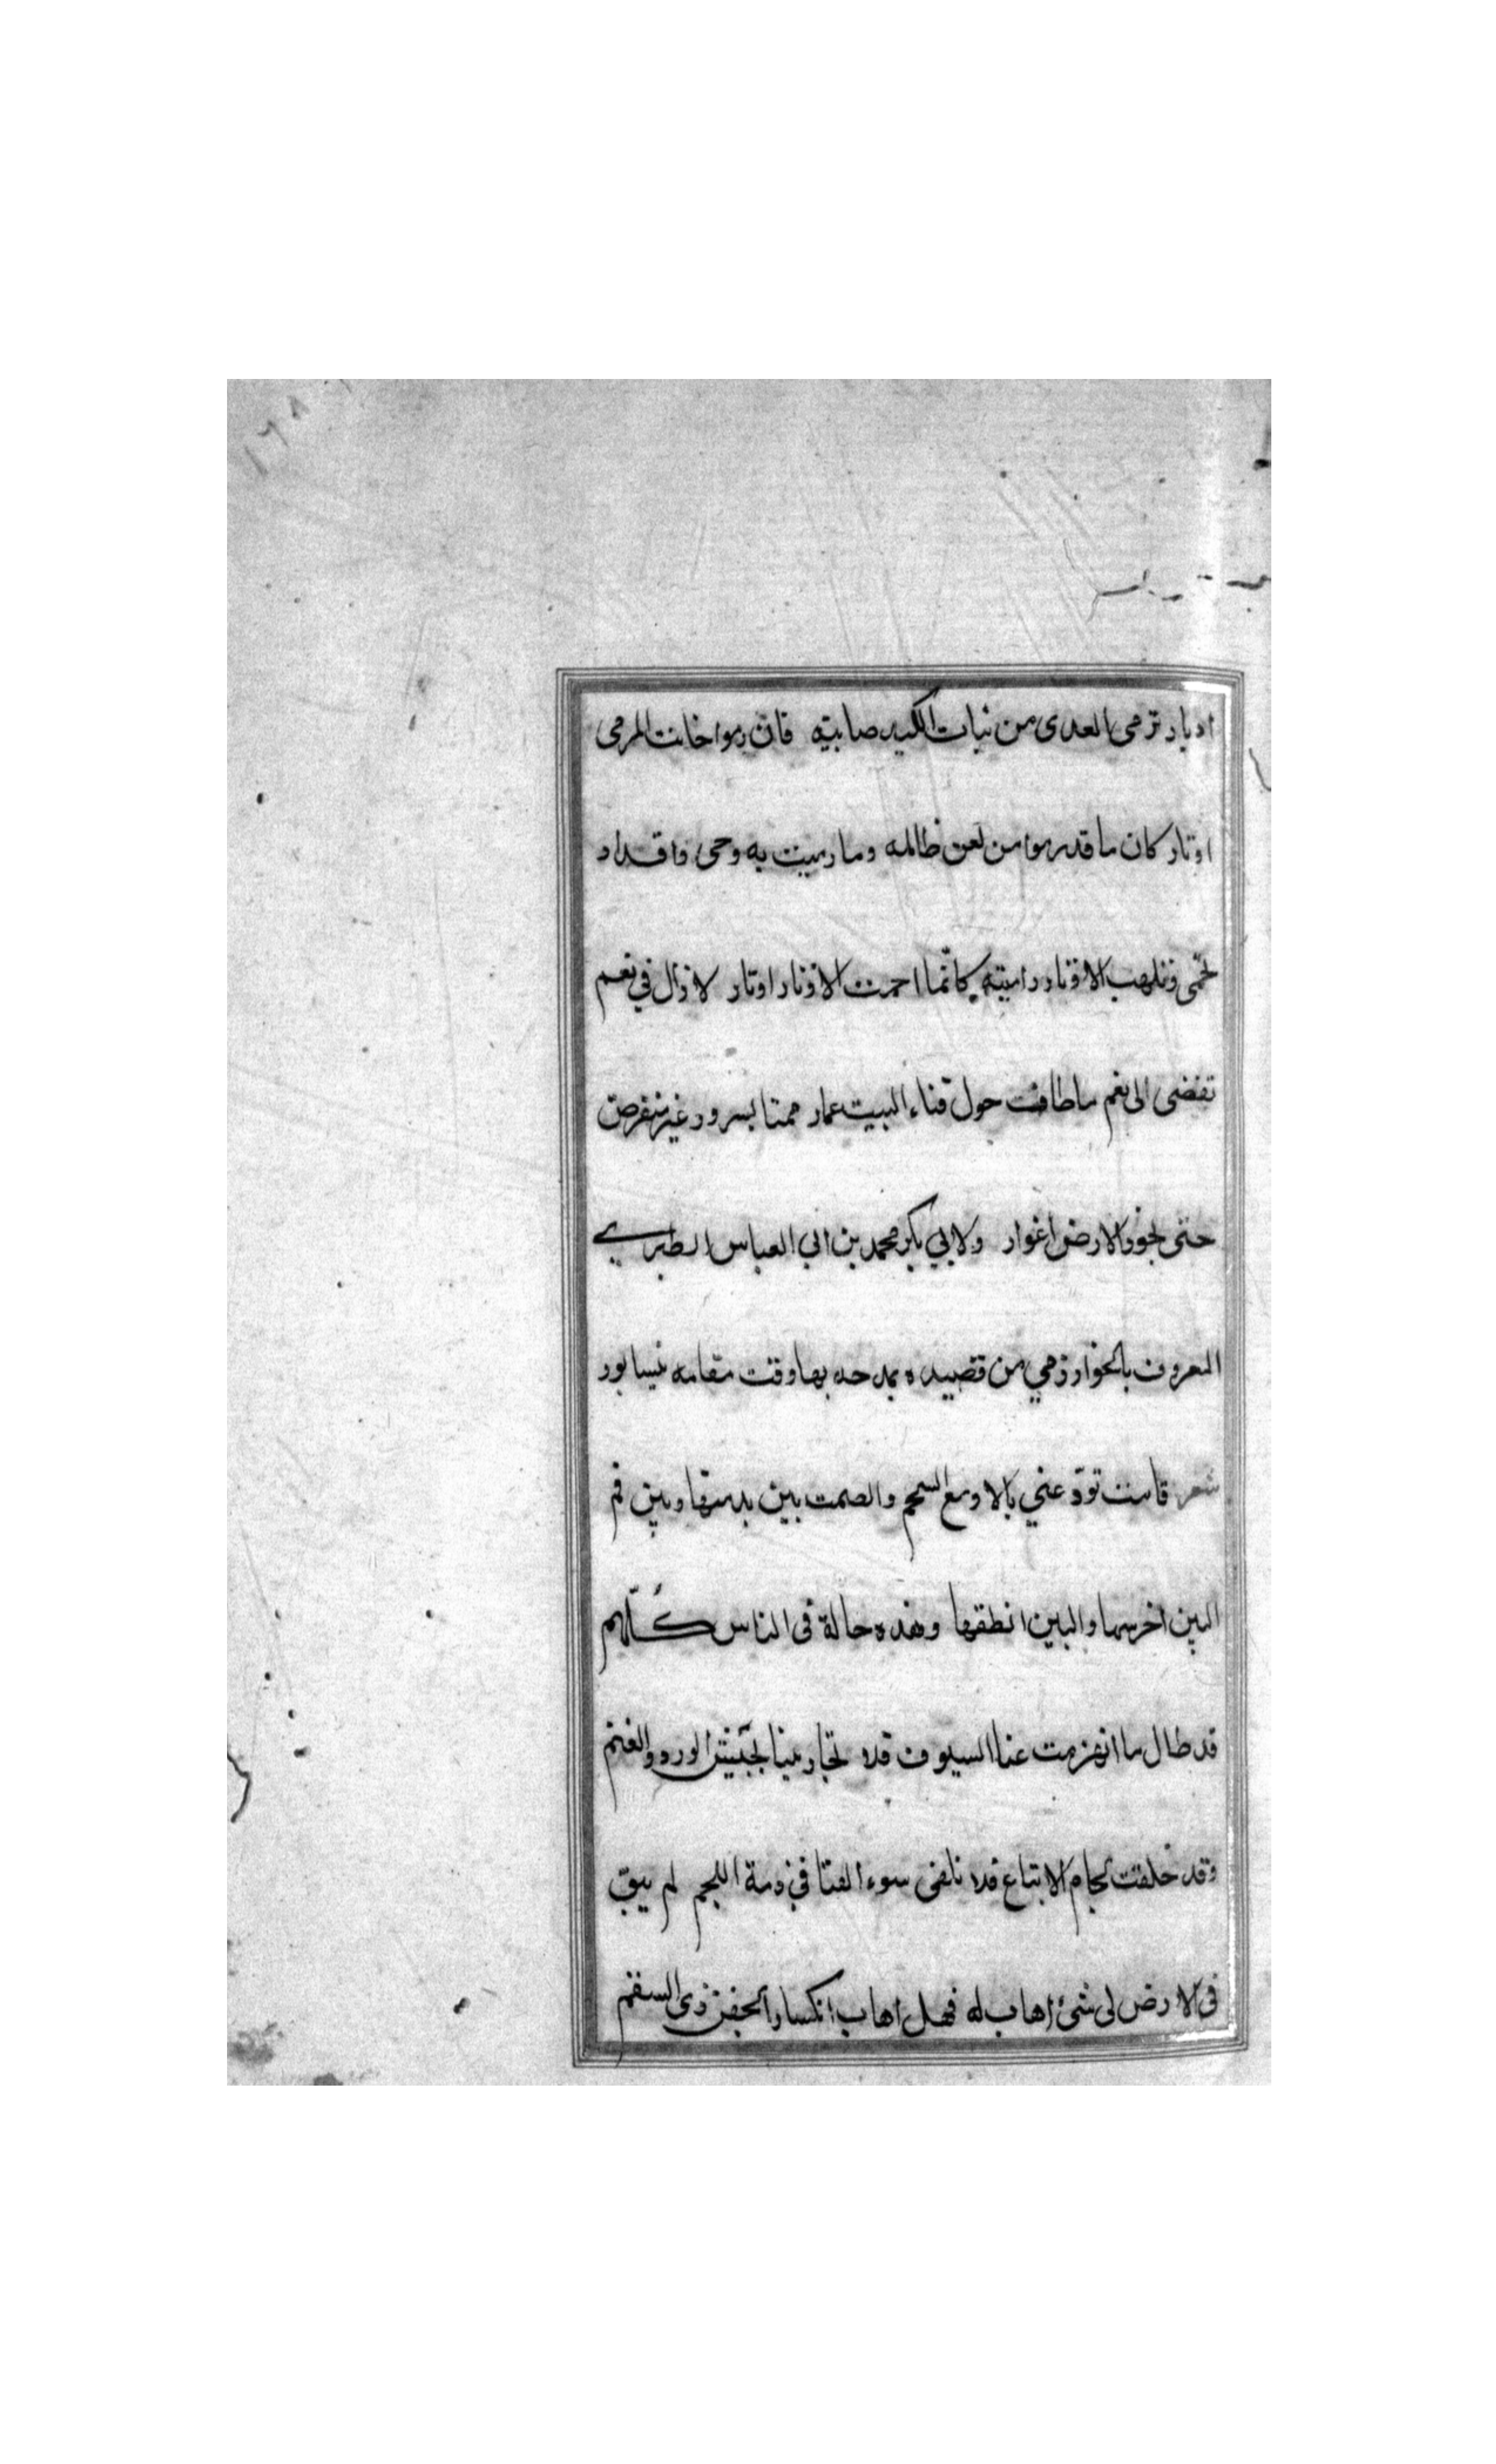 ادبار ترمى العدى من نبات الكيد صابية فان رموا خانت المرمى
اوتار كان ما قد رموا من لعن ظالمه وما رميت به وحى واقداد
تحمى وتلهب الاوتار رامية كانّما احمرت الاوتار اوتار لا زال في نعم
تفضى الى نعم ما طافت حول فناء البيت عمار ممتا بسرور غير منقرض
حتى لجو الارض اغوار ولابي بكر محمد بن ابي العباس الطبري
المعروف بالخوارزمي من قصيده يمدحه بها وقت مقامه نيسابور
شعر قامت تودّعني بالادمع السجم والصمت بين يد منها وبين فم
البين اخرسها والبين انطقها وهذه حالة فى الناس كُلّهم
قد طال ما انهزمت عنا السيوف فلا تحاربينا بجيش الورد والعنم
وقد خلقت لجام الابتاع فلا نلفى سوء الفتا في ذمة اللجم لم يبق
فى الارض لى شئ اهاب له فهل اهاب انكسار الجفن ذى السقم